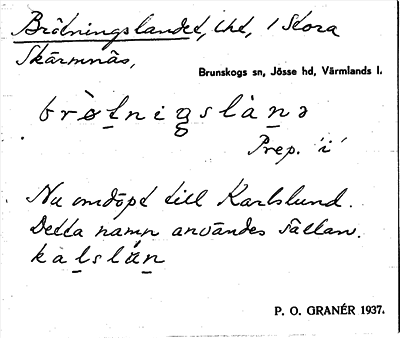 Brötningslandet, lht, 1 Stora
Skärmnäs,
Brunskogs sn, Jösse hd, Värmlands l.
brø̀tnigslànə
Prep. 'i'
Nu omdöpt till Karlslund.
Detta namn användes sällan.
kalslán
P. O. GRANÉR 1937.